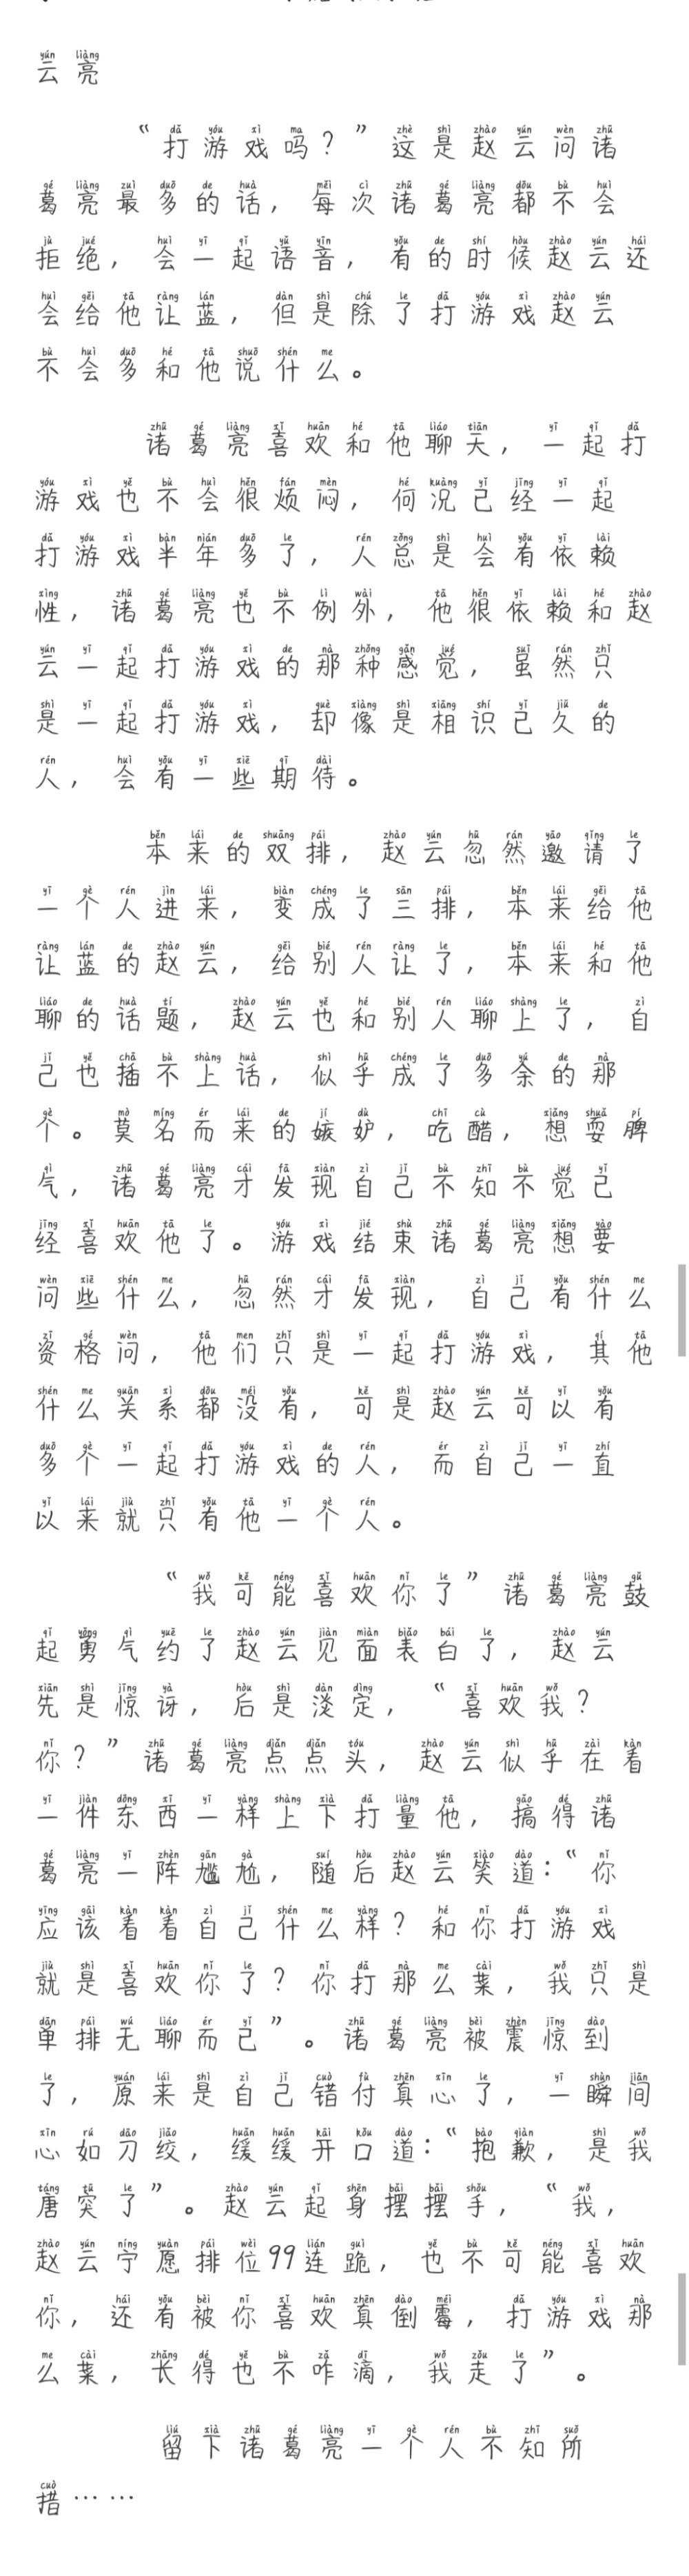 云亮
“打游戏吗？”这是赵云问诸
葛亮最多的话，每次诸葛亮都不会
拒绝，会一起语音，有的时候赵云还
会给他让蓝，但是除了打游戏赵云
不会多和他说什么。
诸葛亮喜欢和他聊天，一起打
游戏也不会很烦闷，何况已经一起
打游戏半年多了，人总是会有依赖
性，诸葛亮也不例外，他很依赖和赵
云一起打游戏的那种感觉，虽然只
是一起打游戏，却像是相识已久的
人，会有一些期待。
本来的双排，赵云忽然邀请了
一个人进来，变成了三排，本来给他
让蓝的赵云，给别人让了，本来和他
聊的话题，赵云也和别人聊上了，自
己也插不上话，似乎成了多余的那
个。莫名而来的嫉妒，吃醋，想耍脾
气，诸葛亮才发现自己不知不觉已
经喜欢他了。游戏结束诸葛亮想要
问些什么，忽然才发现，自己有什么
资格问，他们只是一起打游戏，其他
什么关系都没有，可是赵云可以有
多个一起打游戏的人，而自己一直
以来就只有他一个人。
“我可能喜欢你了”诸葛亮鼓
起勇气约了赵云见面表白了，赵云
先是惊讶，后是淡定，“喜欢我？
你？”诸葛亮点点头，赵云似乎在看
一件东西一样上下打量他，搞得诸
葛亮一阵尴尬，随后赵云笑道：“你
应该看看自己什么样？和你打游戏
就是喜欢你了？你打那么菜，我只是
单排无聊而已”。诸葛亮被震惊到
了，原来是自己错付真心了，一瞬间
心如刀绞，缓缓开口道：“抱歉，是我
唐突了”。赵云起身摆摆手，“我，
赵云宁愿排位99连跪，也不可能喜欢
你，还有被你喜欢真倒霉，打游戏那
么菜，长得也不咋滴，我走了”。
留下诸葛亮一个人不知所
措……